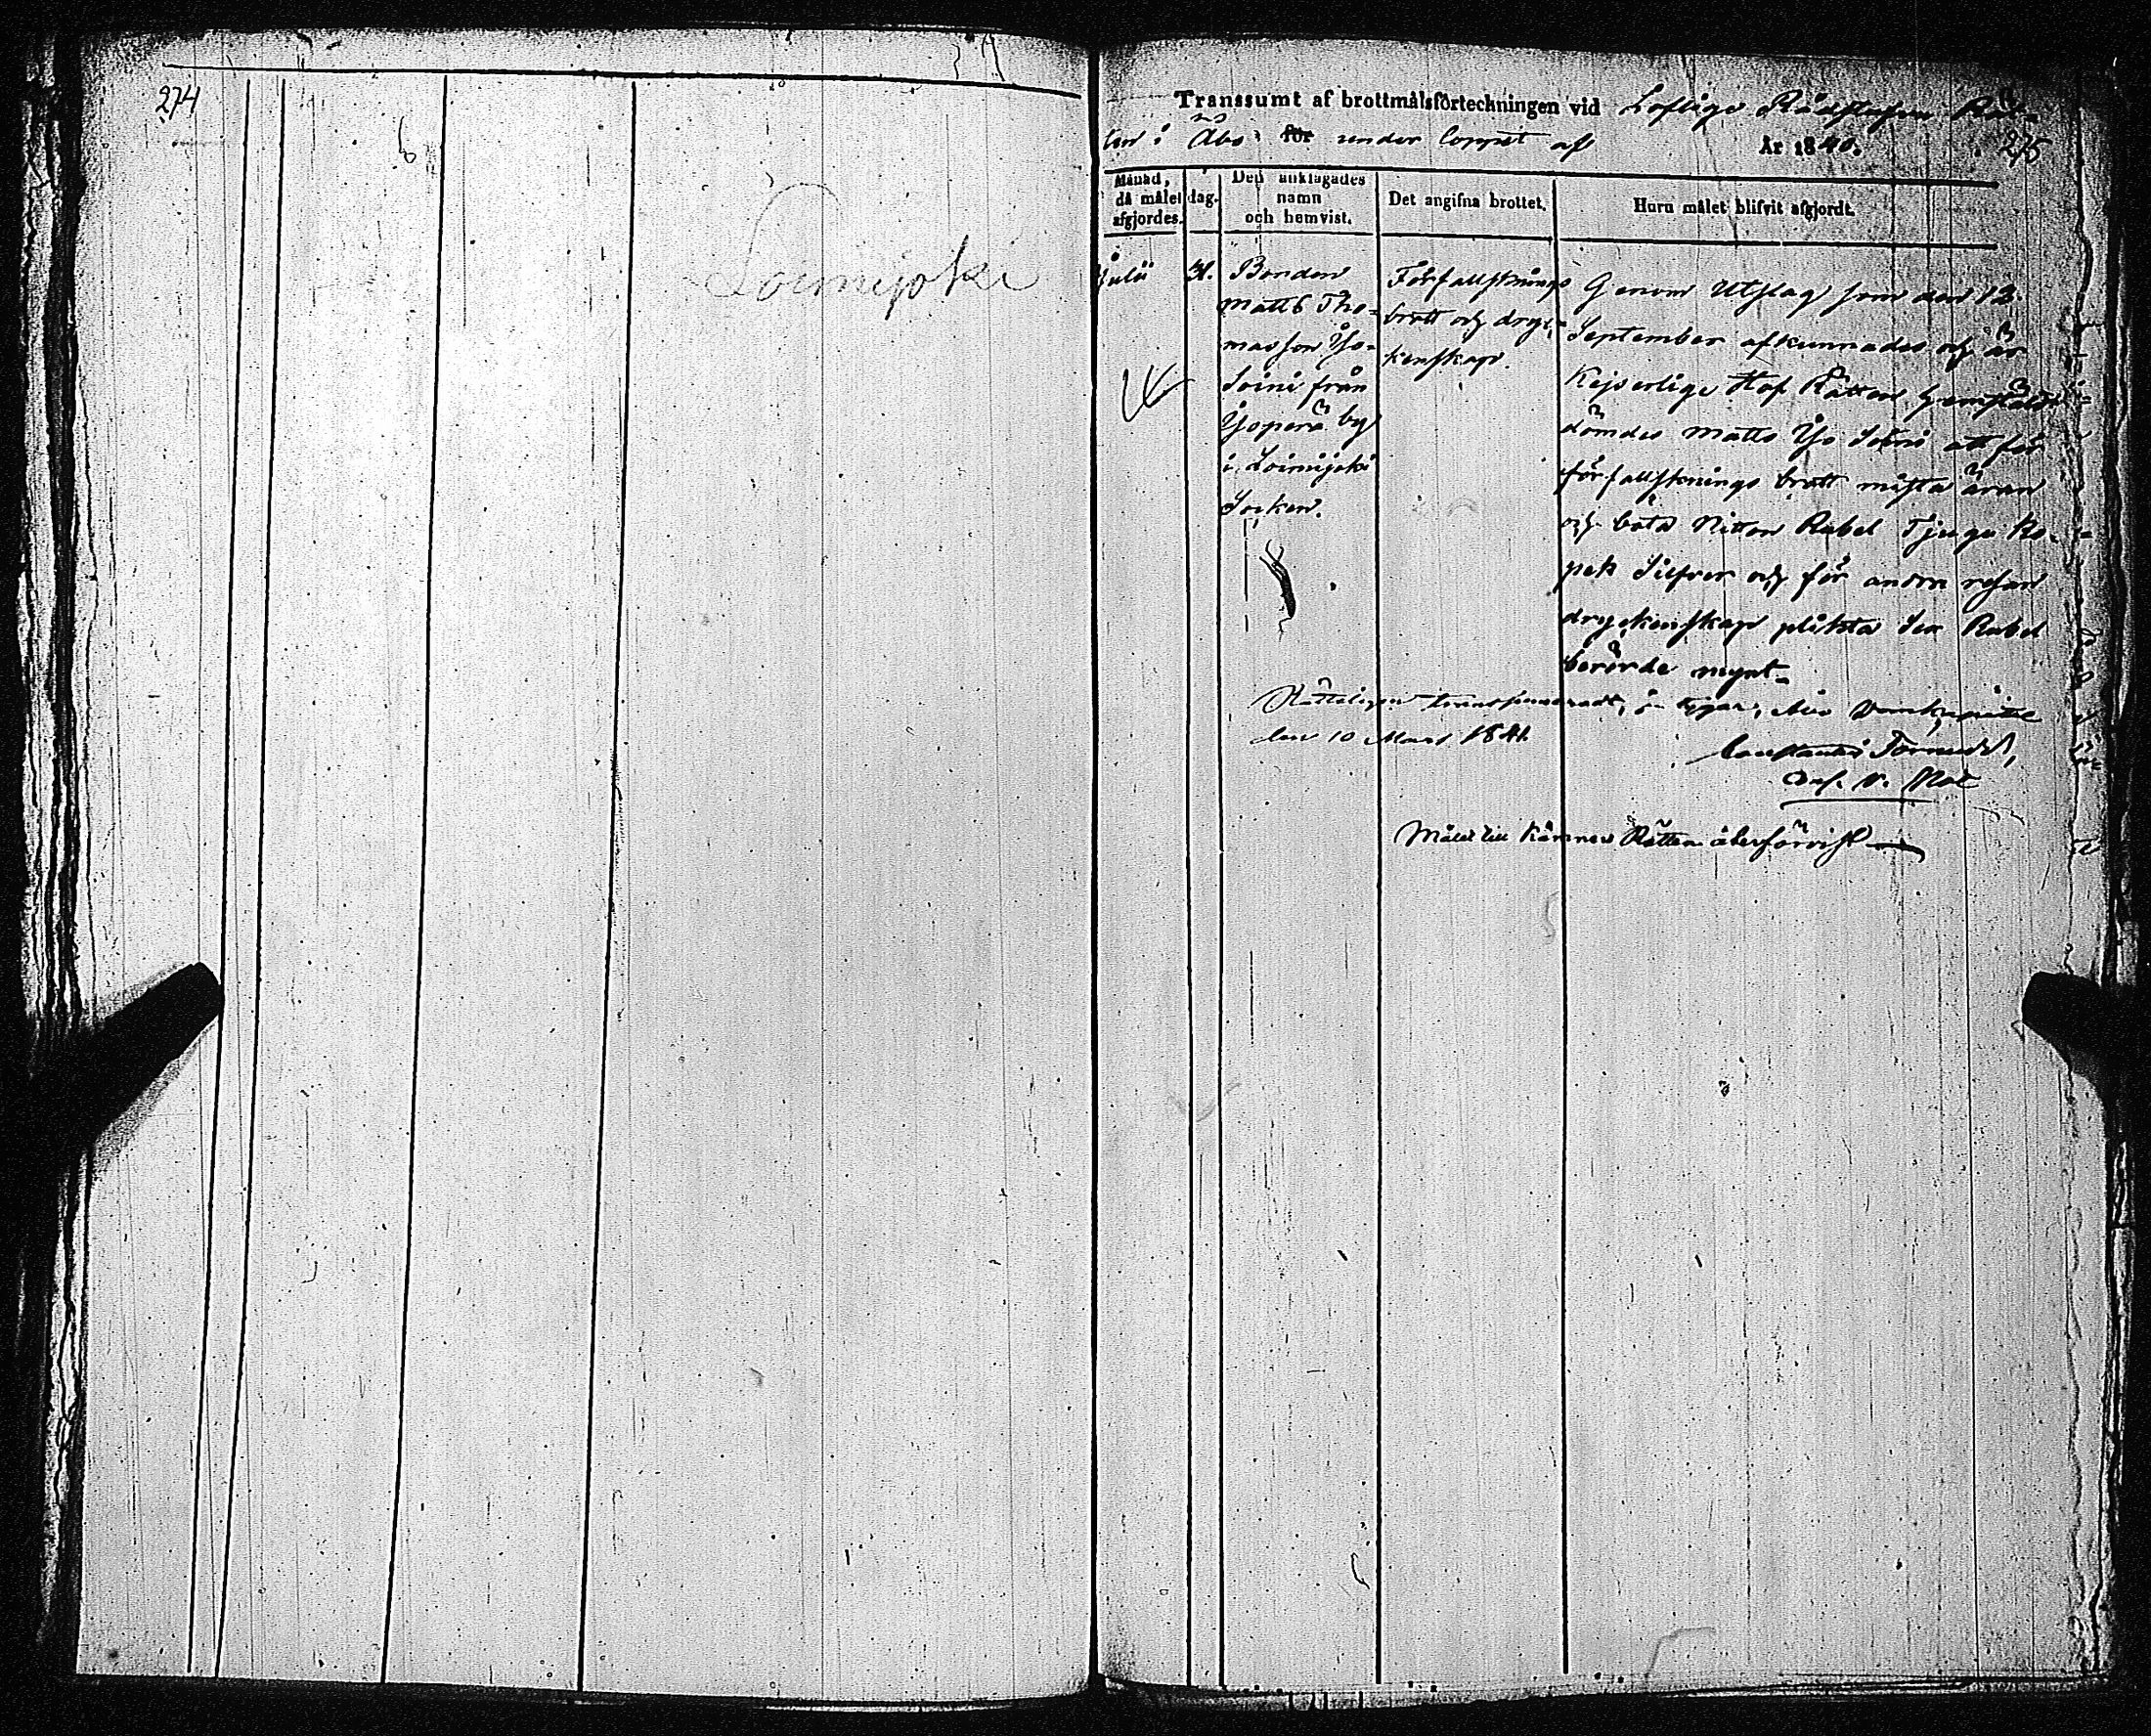 274
Loimijoki
Transsumt af brottmålsförteckningen vid Loflige Rådstufvu Rät-
ten i Åbo för under loppet af År 1840. 275
Månad, då målet afgjordes.
dag.
Den anklagades namn och hemvist.
Det angifna brottet.
Huru målet blifvit afgjordt.
Julii
31.
Bonden
Matts Tho-
masson Yso-
Soini från
Ysoperä by
i Loimijoki
Socken.
Förfallsknings
brott och dryc-
kenskap.
Genom Utslag som den 12
September afkunnades och är
Kejserlige Hof Rätten hemstäldt
dömdes Matts Yso Soini att för
förfallsknings brott mista äran
och böta Nitton Rubel Tjugu Ko-
pek Silfver och för andra resan
dryckenskap plikta Sex Rubel
berörde mynt.
den 10 Mars 1841.
Målet till Kämners Rätten återförvist